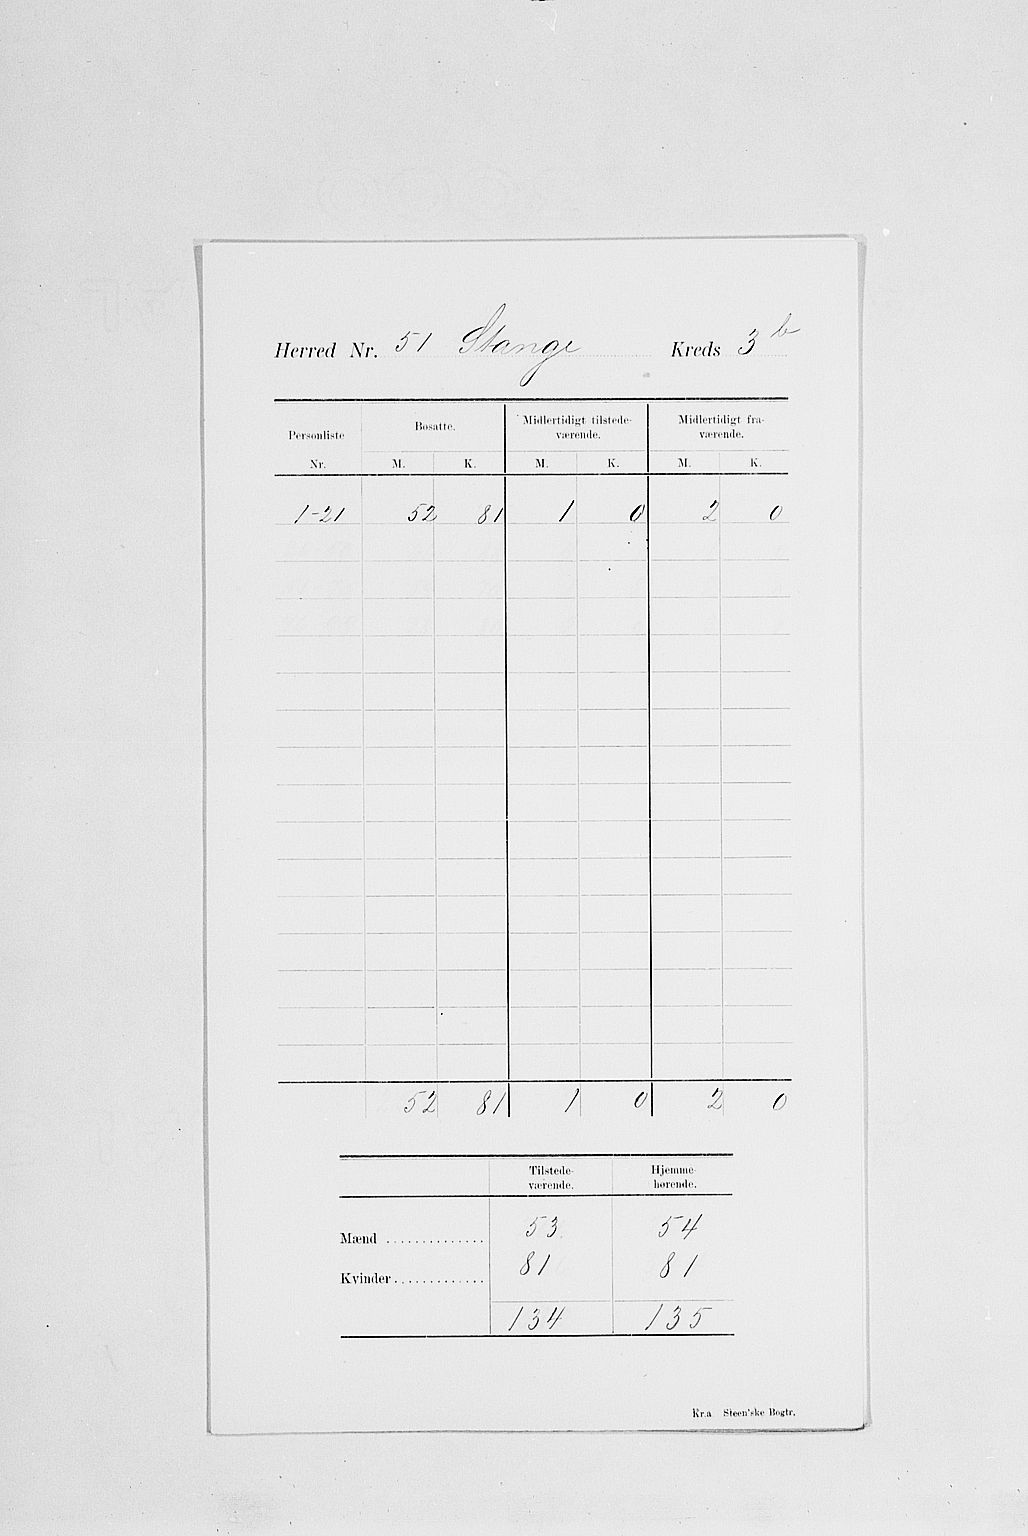 Herred Nr. 51 Stange Kreds 3 b
Personliste Bosatte. Midlertidigt tilstede- Midlertidigt fra-
værende. værende.
Nr. M. K. M. K. M. K.
1-21 52 81 1 0 2 0
52 81 1 0 2 0
Tilstede- Hjemme-
værende. hørende.
Mænd .............. 53 54
Kvinder............. 81 81
134 135
Kr.a Steen'ske Bogtr.